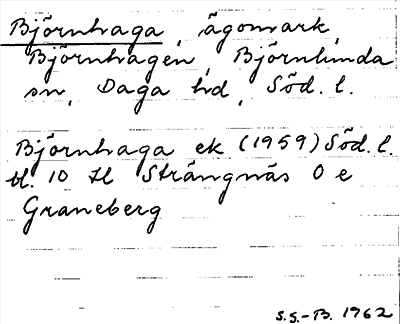 Björnhaga, ägomark,
Björnhagen, Björnlunda
sn, Daga hd, Söd. l.
Björnhaga ek (1959) Söd. l.
bl. 10 H Strängnäs O e
Graneberg
S.S.-B. 1962